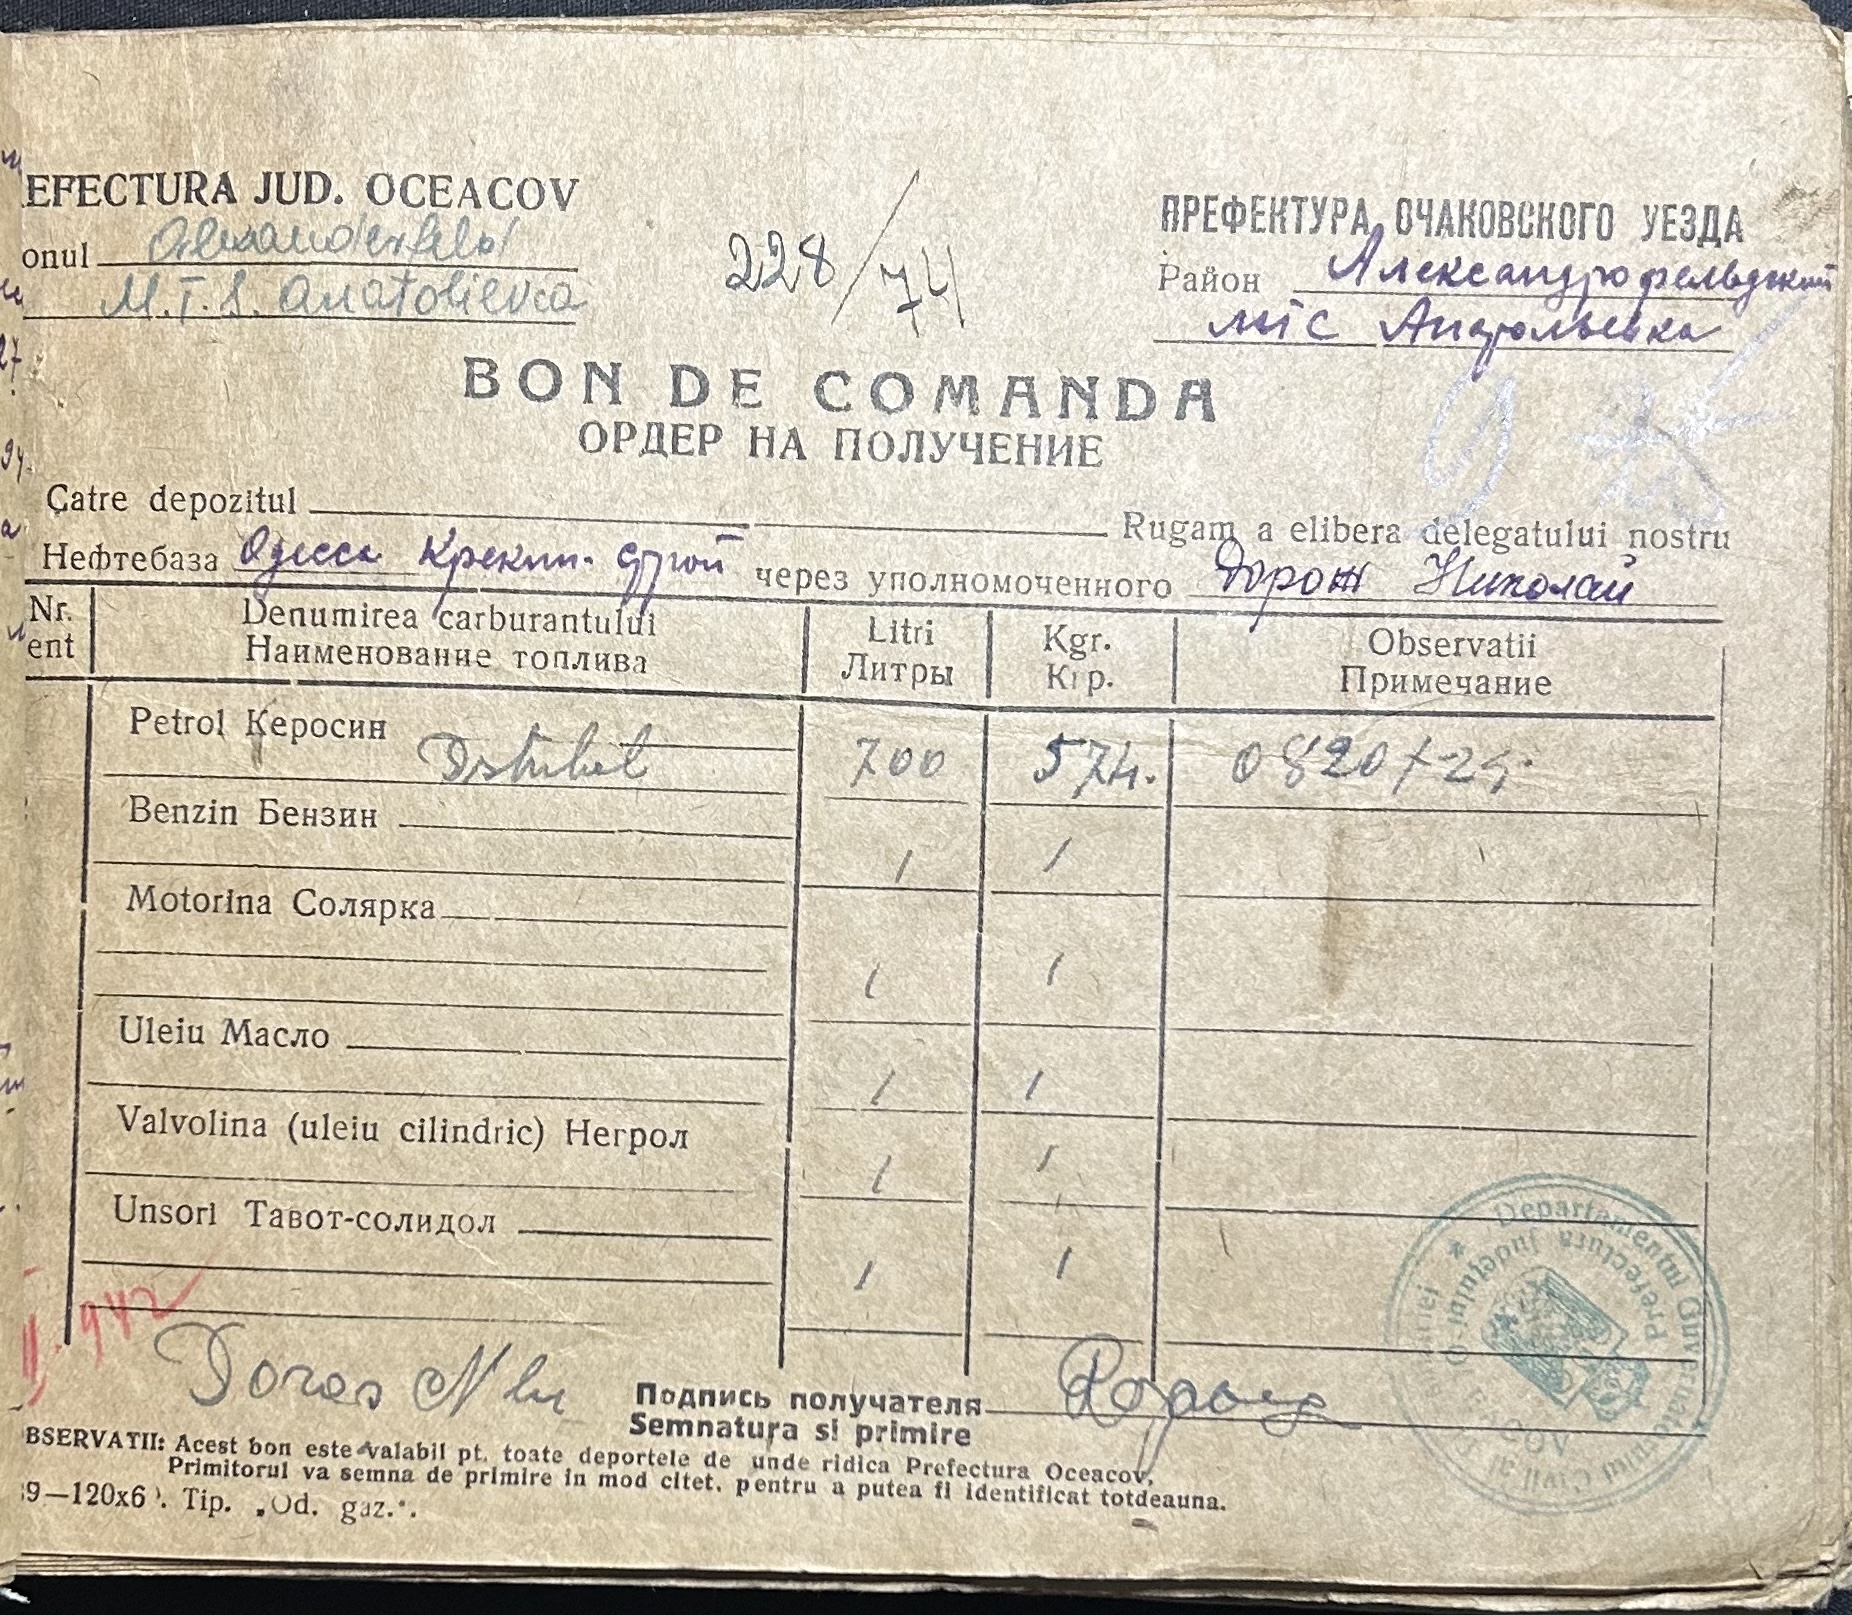 EFECTURA JUD. OCEACOV
onul Alexanderfeld
M.T.S. Anatolievca
228/74
ПРЕФЕКТУРА ОЧАКОВСКОГО УЕЗДА
Район Александрофельдский
мтс Анатольевка
BON DE COMANDA
ОРДЕР НА ПОЛУЧЕНИЕ
Catre depozitul Rugam a elibera delegatului nostru
Нефтебаза Одесса Крекин-строй через уполномоченного Дорож Николай
Nr. Denumirea carburantului Litri Kgr. Observatii
ent Наименование топлива Литры Кгр. Примечание
Petrol Керосин
700 574. 0820/24
Benzin Бензин
Motorina Солярка
Uleiu Масло
Valvolina (uleiu cilindric) Негрол
Unsori Тавот-солидол
942
Doros
Подпись получателя
Semnatura si primire
BSERVATII: Acest bon este valabil pt. toate deportele de unde ridica Prefectura Oceacov,
Primitorul va semna de primire in mod citet, pentru a putea fi identificat totdeauna.
9—120x6 Tip. „Od. gaz.".
Departamentul Guvernatorului Civil al
Prefectura Judeţului